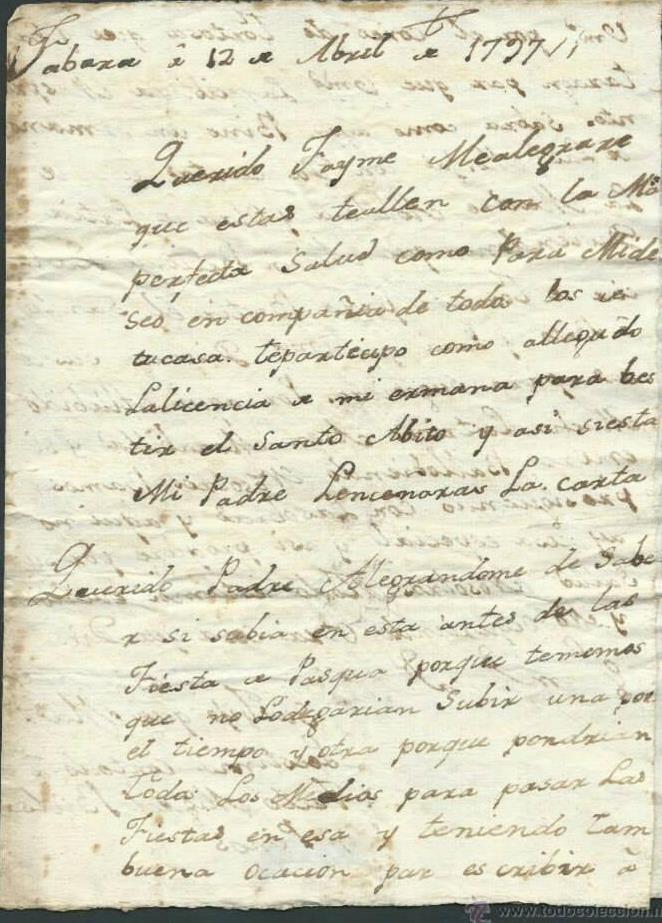 Fabara à 12 de Abril de 1797
Querido Jayme Mealegrare
que estas teallen con la Ma
perfecta Salud como Para Mide
seo en compañia de toda los de
tucasa. teparticipo como allegado
Lalicencia de mi ermana para bes
tir el Santo Abito y asi siesta
Mi Padre Lencenaras La carta
Querido Padre Alegrandome de Sabe
r si sabia en esta antes de las
Fiesta de Pasqua porque tememos
que no Lodegarian Subir una por
el tiempo y otra porque pondrian
Todos Los Medios para pasar Las
Fiestas en esa y teniendo tam
buena ocacion par escribir à
www.todocoleccion.n